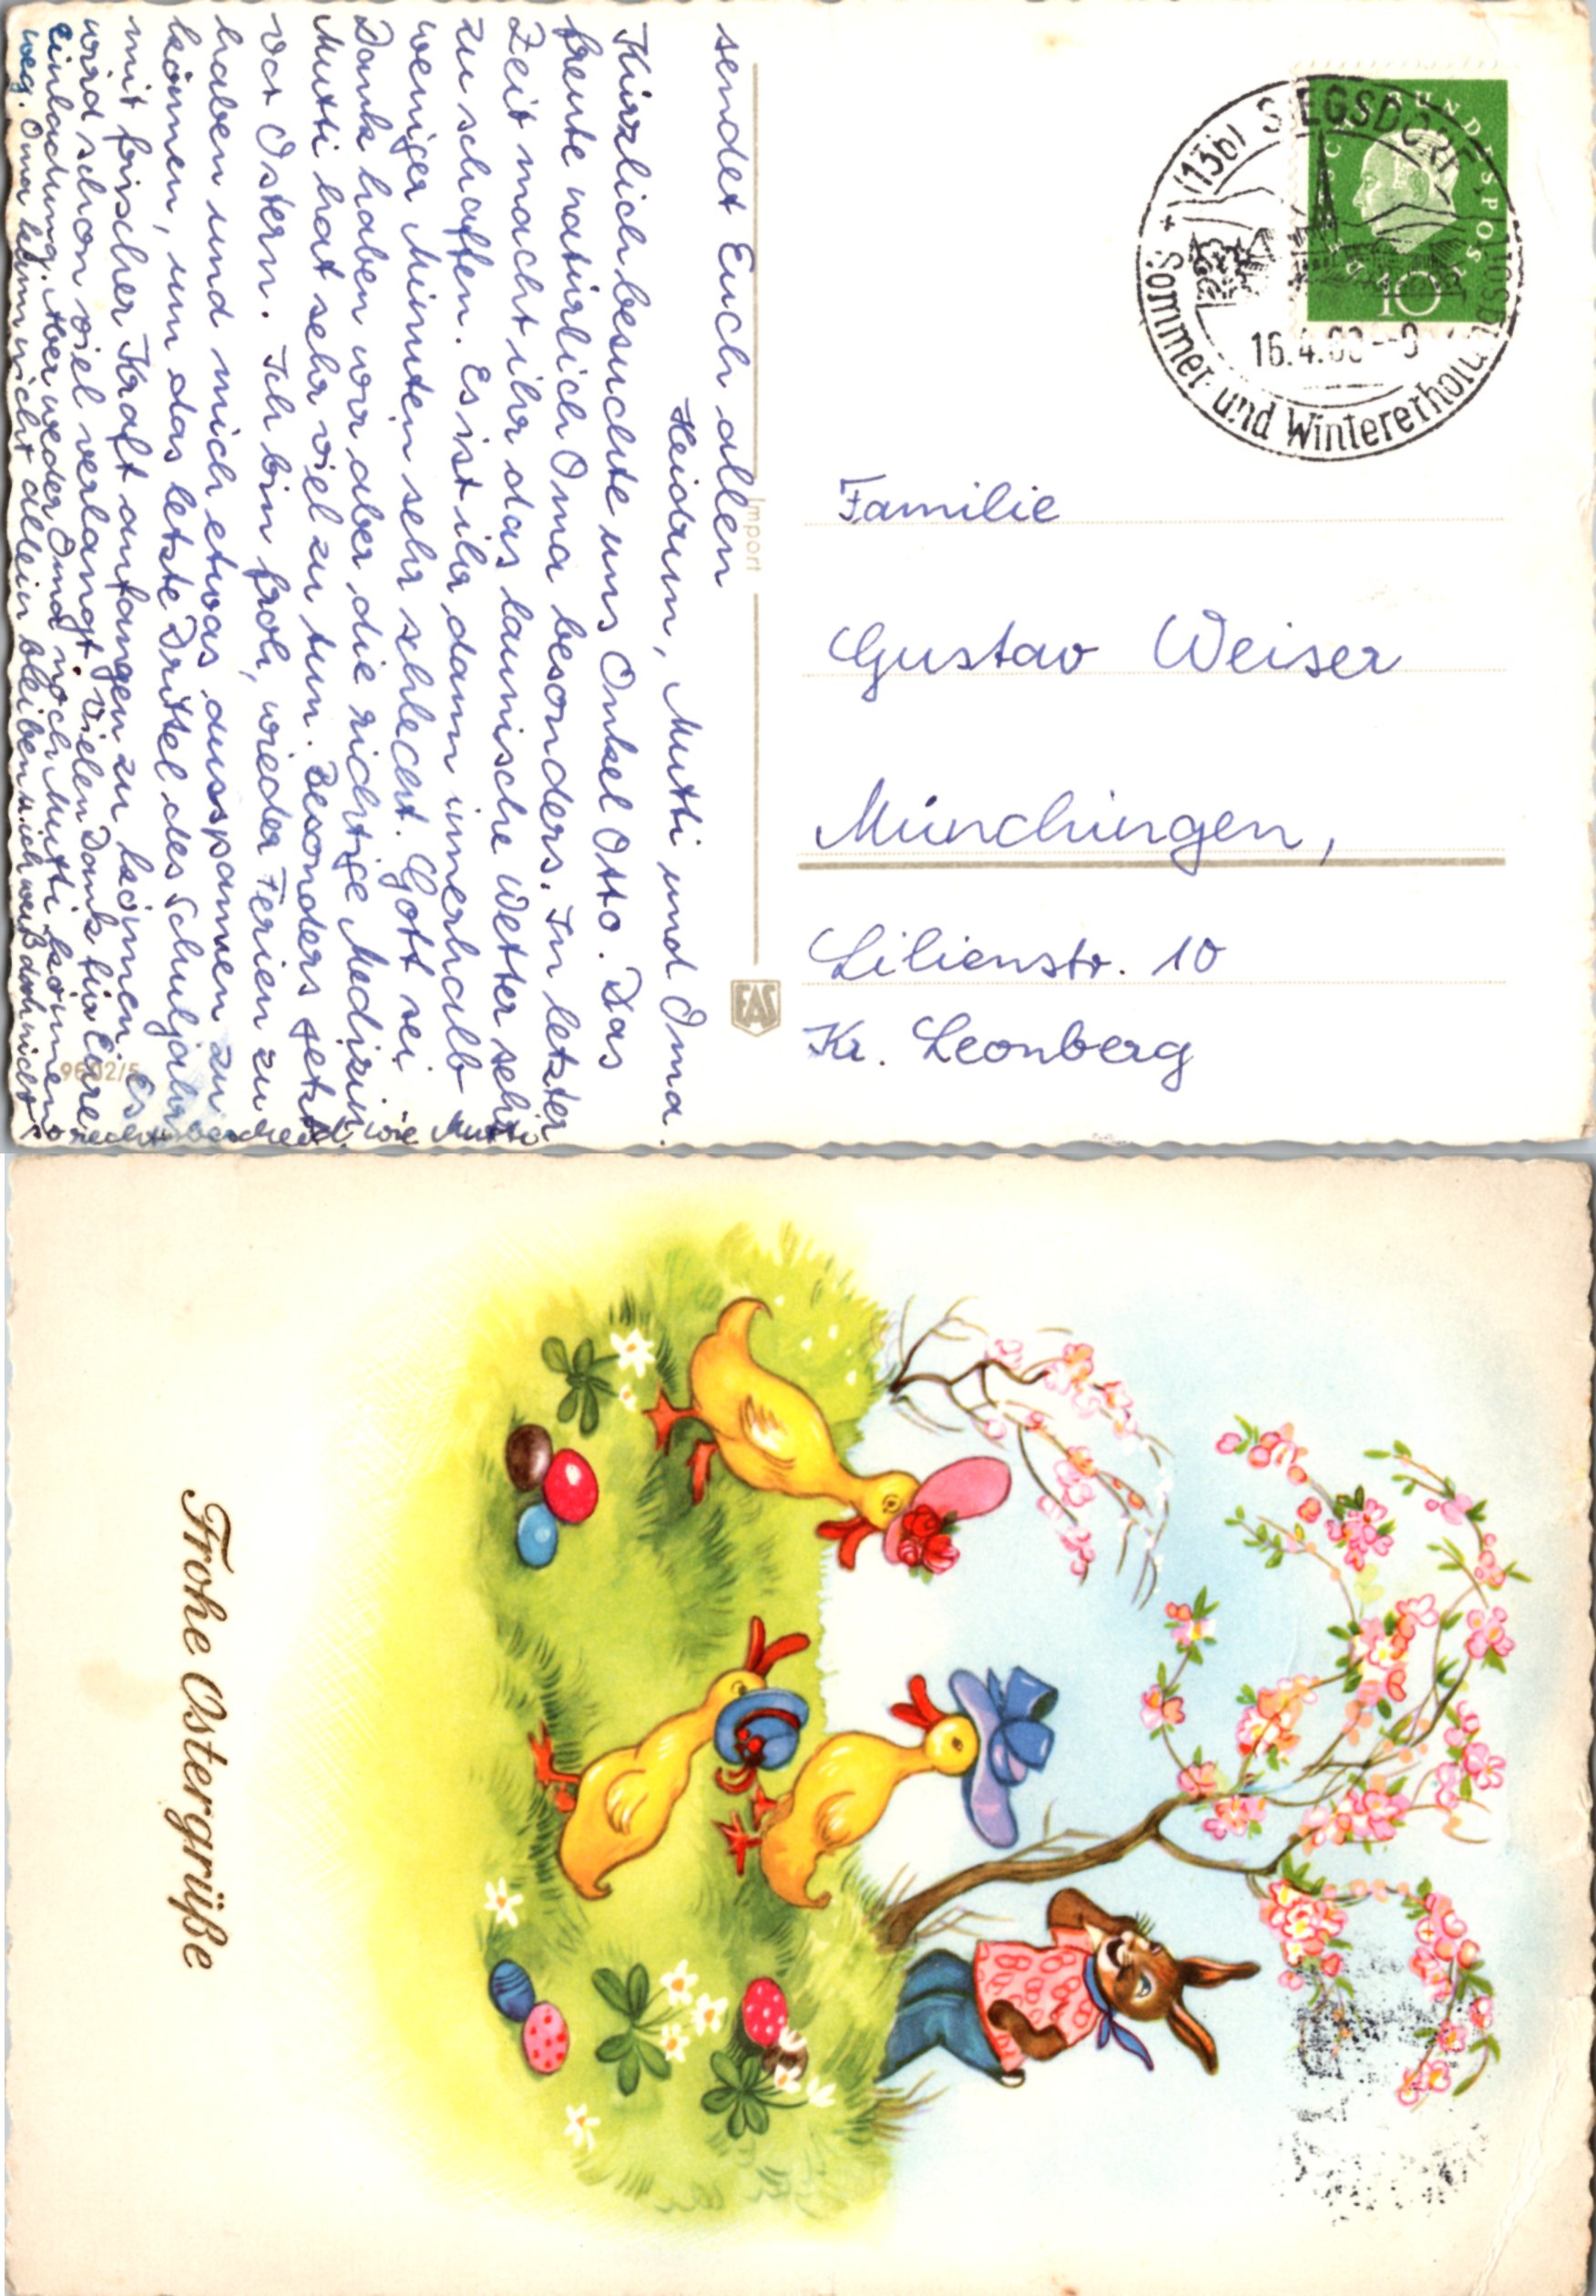 sendet Euch allen
Heidrun, Mutti und Oma.
Kürzlich besuchte uns Onkel Otto. Das
freute natürlich Oma besonders. In letzter
Zeit macht ihr das launische Wetter sehr
zu schaffen. Es ist ihr dann innerhalb
weniger Minuten sehr schlecht. Gott sei
Dank haben wir aber die richtige Medizin
Mutti hat sehr viel zu tun. Besonders jetzt
vor Ostern. Ich bin froh, wieder Ferien zu
haben und mich etwas ausspannen zu
können, um das letzte Drittel des Schuljahr
mit frischer Kraft anfangen zu können. Es
wird schon viel verlangt. Vielen Dank für Eure
Einladung. Aber weder Oma noch Mutti können
weg. Oma kann nicht allein bleiben u. ich weiß doch nicht
so recht bescheid, wie Mutti
Import
EAS
9602/5
BUNDESPOST
10
(13b) SIEGSDORF
16.4.60--9
Sommer- und Wintererholu
Familie
Gustav Weiser
Münchingen,
Lilienstr. 10
Kr. Leonberg
Frohe Ostergrüße